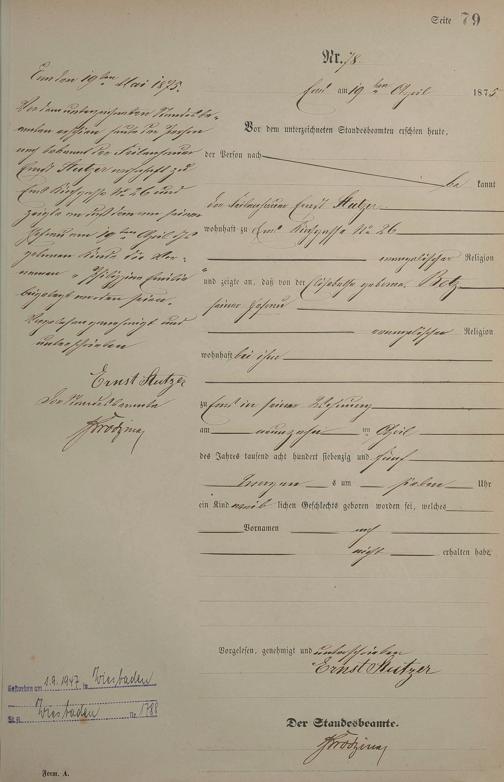 Seite 79
Nr. 78.
Ems am 19 ten April 1875
Vor dem unterzeichneten Standesbeamten erschien heute,
der Person nach
be kannt
der Feilenhauer Ernst Stutzer
wohnhaft zu Ems Kirchgasse No 26
evangelischer Religion
und zeigte an, daß von der Elisabethe geborne Betz
seiner Ehefrau
evangelischer Religion
wohnhaft bei ihm
zu Ems in seiner Wohnung
am neunzehn ten April
des Jahres tausend acht hundert siebenzig und fünf
Morgen s um sieben Uhr
ein Kind weib lichen Geschlechts geboren worden sei, welches
Vornamen noch
nicht erhalten habe
Vorgelesen, genehmigt und unterschrieben
Ernst Stutzer
Der Standesbeamte.
Form. A.
Ems den 19 ten Mai 1875.
Vor dem unterzeichneten Standesbe-
amten erschien heute der Person
nach bekannt der Feilenhauer
Ernst Stutzer wohnhaft zu
Ems Kirchgasse No 26 und
zeigte an daß dem von seiner
Ehefrau am 19 ten April
geborenen Kinde die Vor-
namen „Philippine Emilie“
beigelegt worden seien.
Vorgelesen genehmigt und
unterschrieben
Ernst Stutzer
Der Standesbeamte
Gestorben am 1.9.1947 in Wiesbaden
St.A. Wiesbaden Nr. 1788